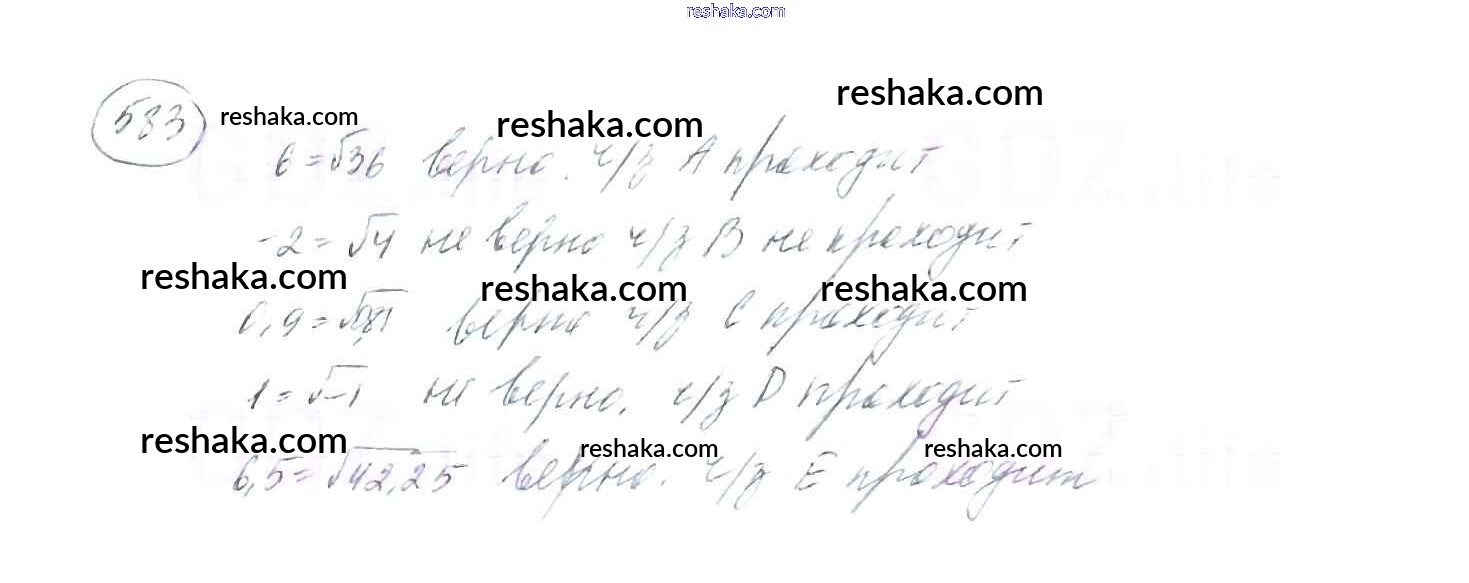 reshaka.com
583 reshaka.com reshaka.com reshaka.com
6 = √36 верно. ч/з A проходит
-2 = √4 не верно ч/з B не проходит
reshaka.com reshaka.com reshaka.com
0,9 = √0,81 верно ч/з C проходит
1 = √-1 не верно. ч/з D проходит
reshaka.com reshaka.com reshaka.com
6,5 = √42,25 верно. ч/з E проходит